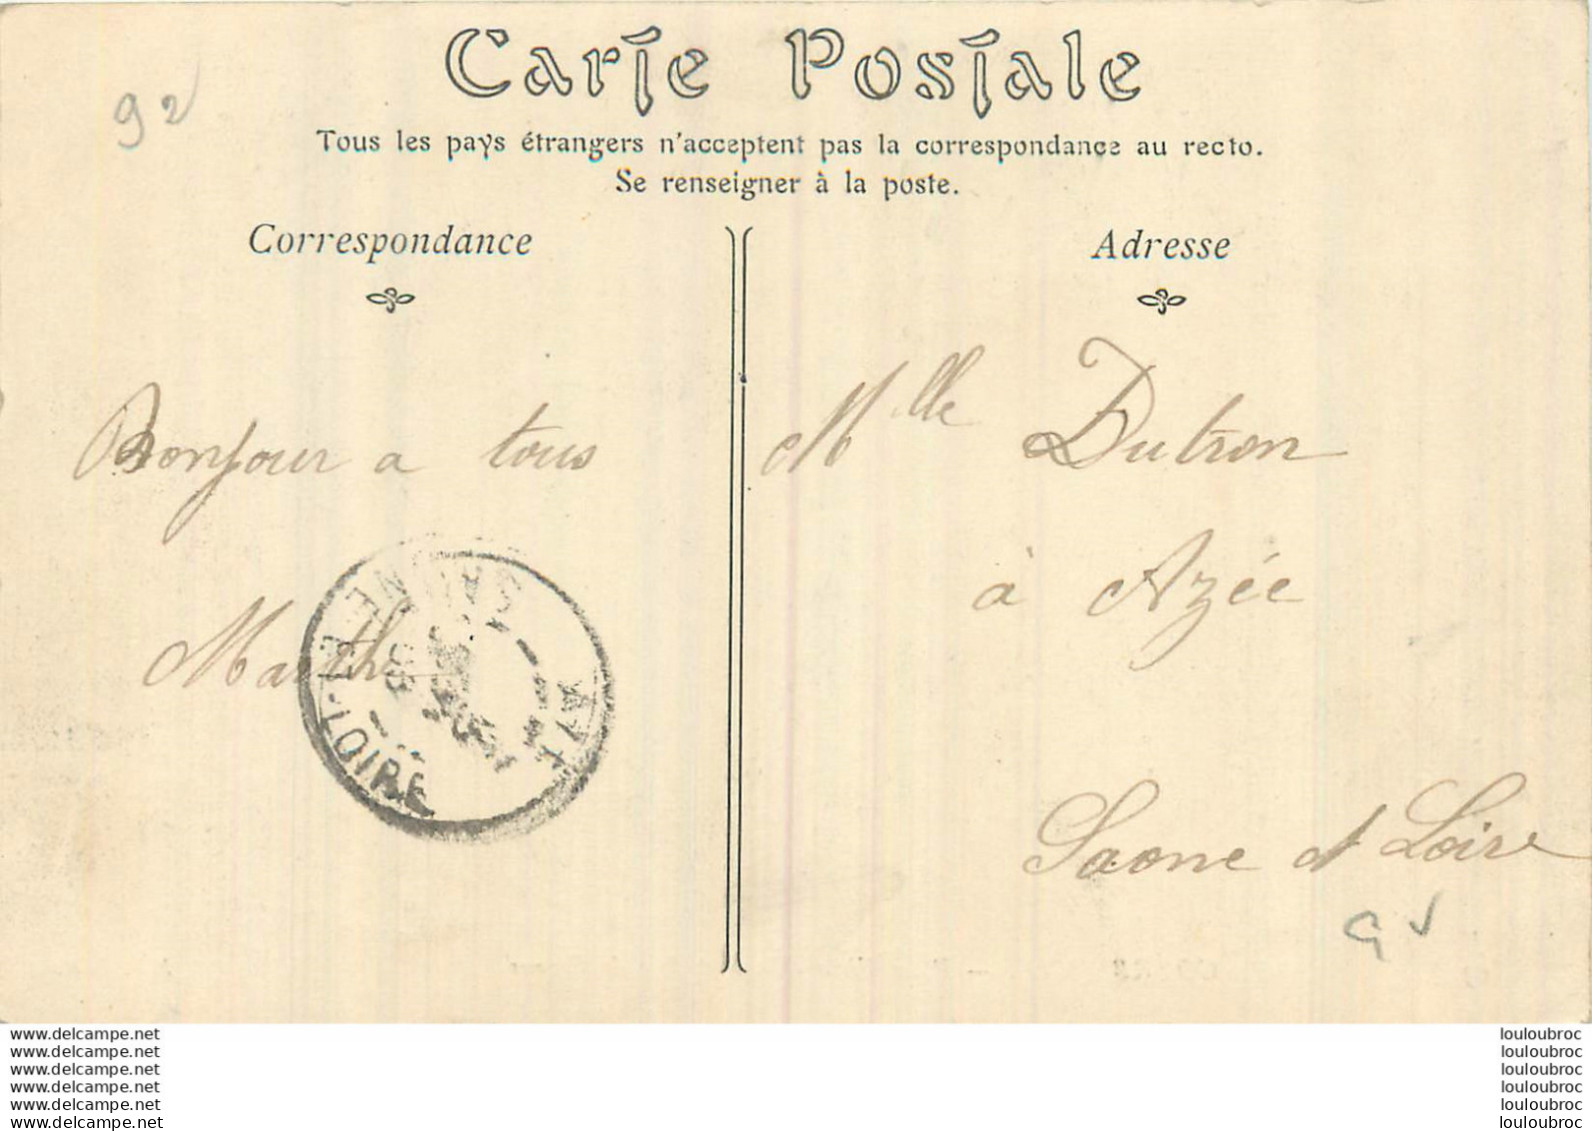 Carte Postale
92
Tous les pays étrangers n'acceptent pas la correspondance au recto.
Se renseigner à la poste.
Correspondance
Adresse
Bonjour a tous
Marthe
SAONE-ET-LOIRE
08
Mlle Dutron
à Azée
Saone et Loire
www.delcampe.net
www.delcampe.net
www.delcampe.net
www.delcampe.net
www.delcampe.net
www.delcampe.net
louloubroc
louloubroc
louloubroc
louloubroc
louloubroc
louloubroc